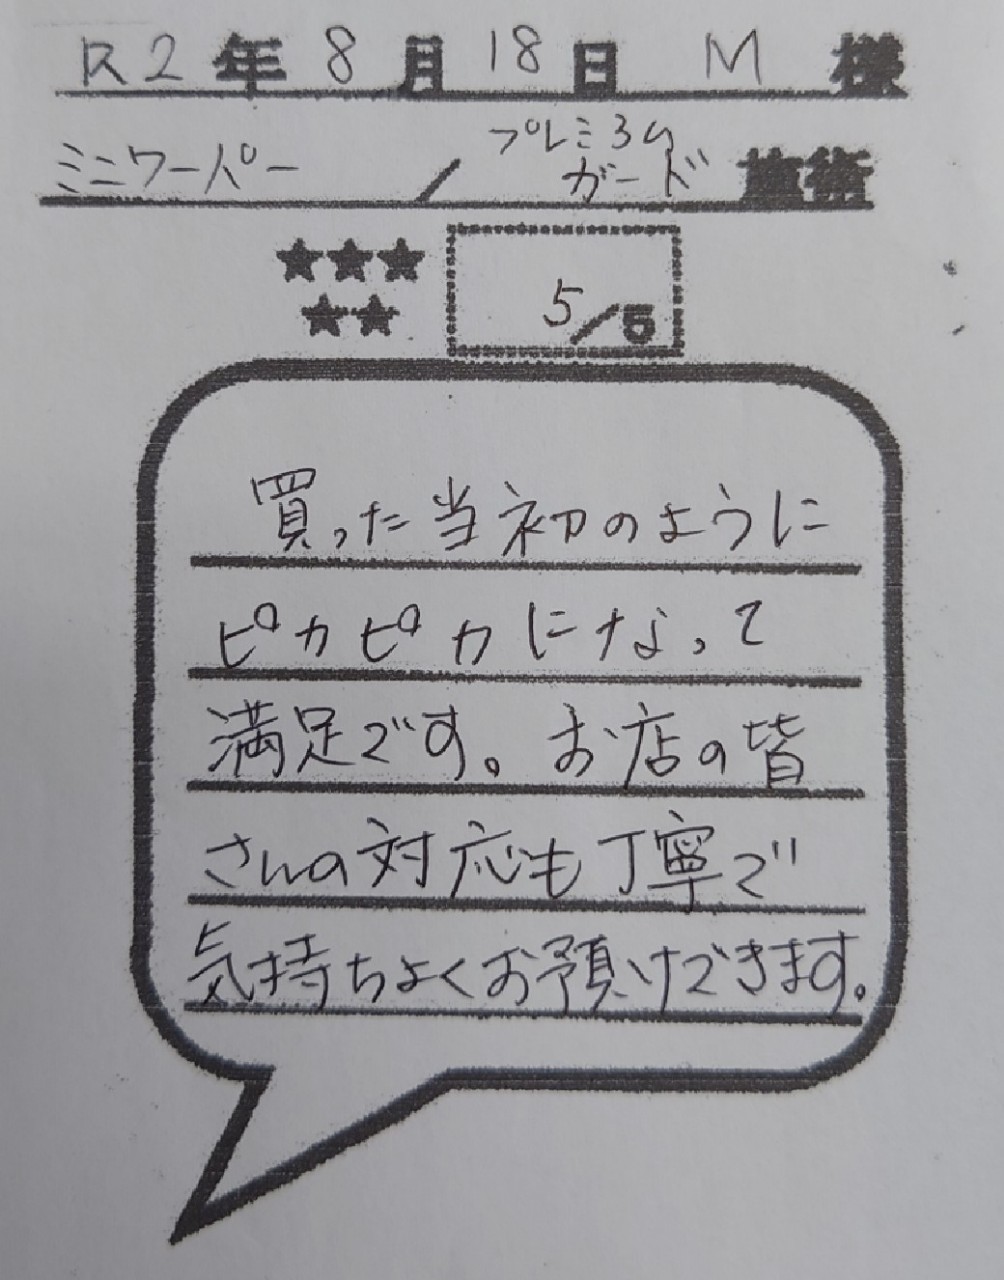 R2年8月18日 M 様
ミニクーパー / プレミアム
ガード 施術
★★★
★★
5/5
買った当初のように
ピカピカになって
満足です。お店の皆
さんの対応も丁寧で
気持ちよくお預けできます。